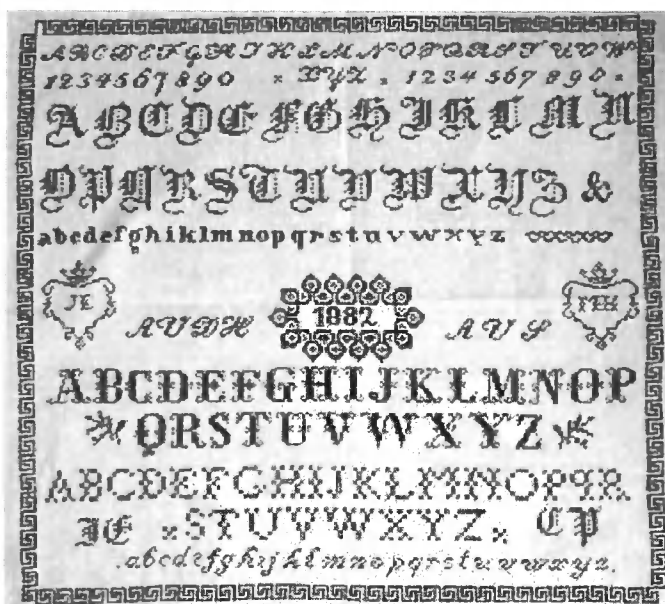 A B C D E F G H I K L M N O P Q R S T U V W
1 2 3 4 5 6 7 8 9 0 × X Y Z × 1 2 3 4 5 6 7 8 9 0 ×
A B C D E F G H I K L M N
O P Q R S T U V W X Y Z &
a b c d e f g h i k l m n o p q r s t u v w x y z
JE AVDH 1882 AVS
A B C D E F G H I J K L M N O P
Q R S T U V W X Y Z
A B C D E F G H I J K L M N O P Q R
JE × S T U V W X Y Z × CP
. a b c d e f g h i j k l m n o p q r s t u v w x y z .